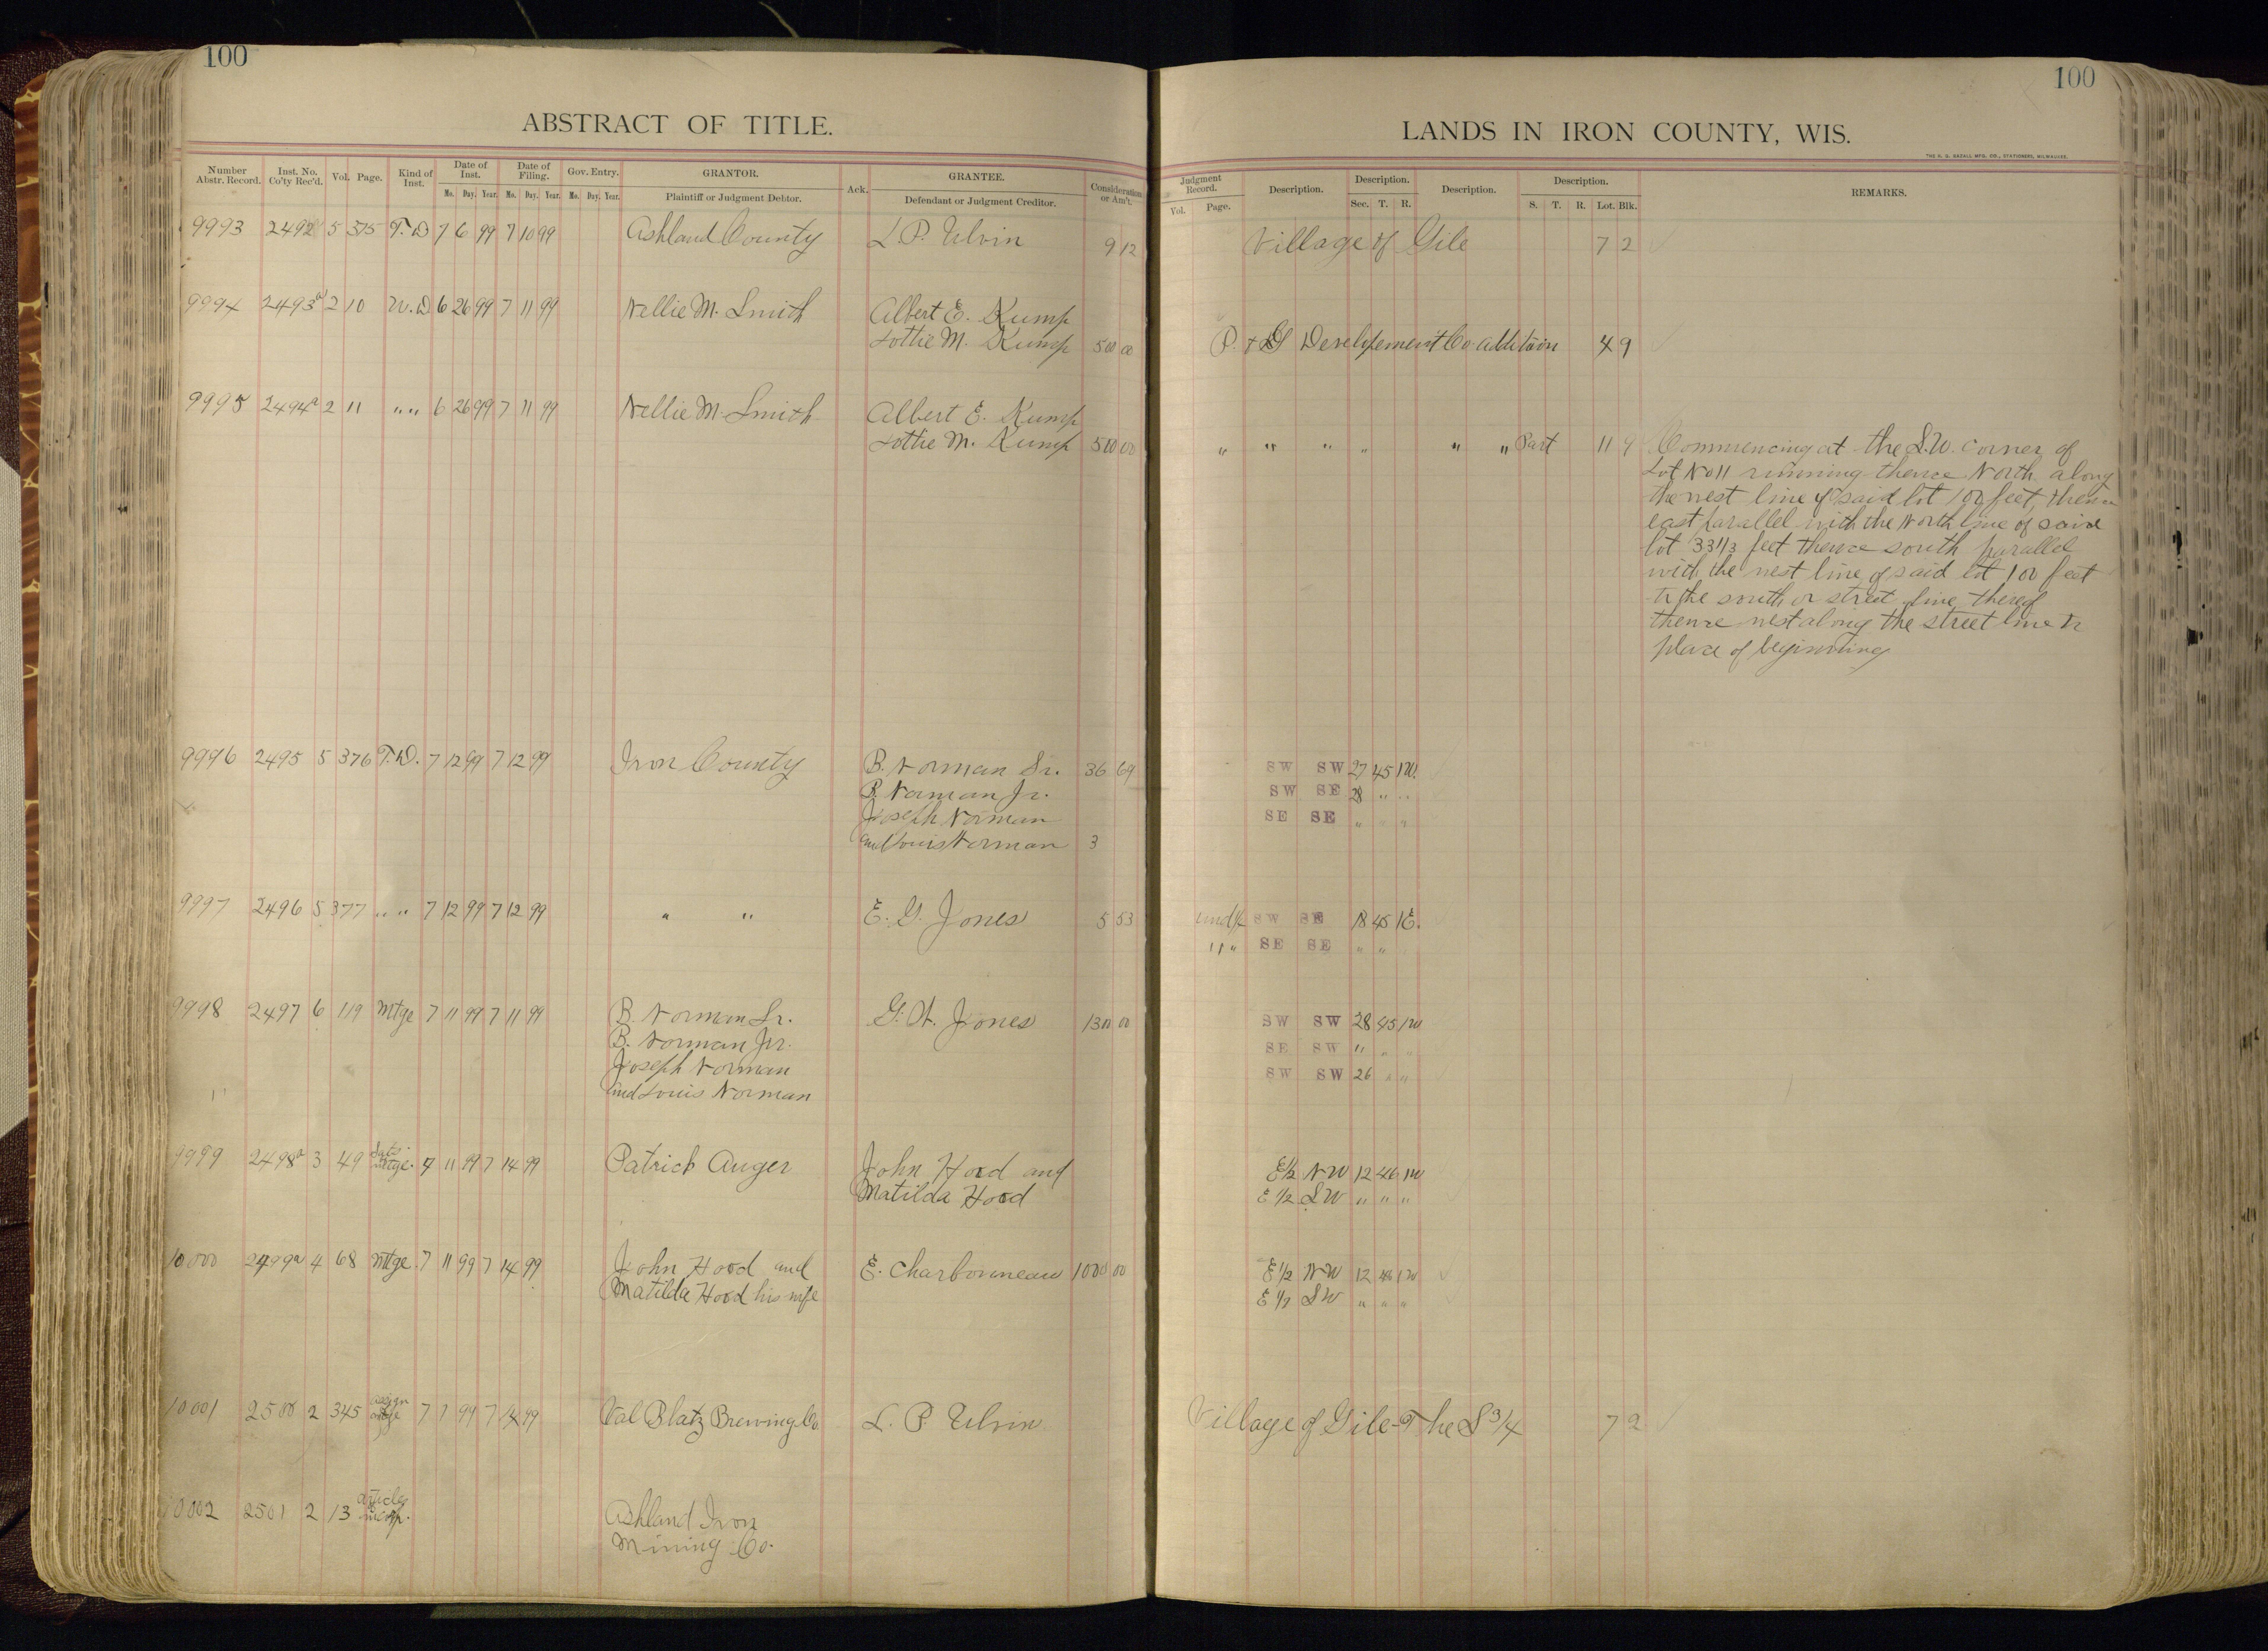 100
100
ABSTRACT OF TITLE.
LANDS IN IRON COUNTY, WIS.
THE H. G. RAZALL MFG. CO., STATIONERS, MILWAUKEE.
Number Abstr. Record. Inst. No. Co'ty Rec'd. Vol. Page. Kind of Inst. Date of Inst. Mo. Day. Year. Date of Filing. Mo. Day. Year. Gov. Entry. Mo. Day. Year. GRANTOR. Plaintiff or Judgment Debtor. Ack. GRANTEE. Defendant or Judgment Creditor. Consideration or Am't.
Judgment Record. Vol. Page. Description. Description. Sec. T. R. Description. Description. S. T. R. Lot. Blk. REMARKS.
9993 2492 5 375 T.D 7 6 99 7 10 99 Ashland County L P. Ulvin 9 12 Village of Gile 7 2
9994 2493a 2 10 W.D 6 26 99 7 11 99 Nellie M. Smith Albert E. Kump
Lottie M. Kump 500 00 P. & G Developement Co addition 4 9
9995 2494a 2 11 " " 6 26 99 7 11 99 Nellie M. Smith Albert E. Kump
Lottie M. Kump 500 00 " " " " " " Part 11 9 Commencing at the S.W. corner of
Lot No 11 running thence North along
the west line of said lot 100 feet, thence
east parallel with the North line of said
lot 33 1/3 feet thence south parallel
with the west line of said lot 100 feet
to the south or street line thereof
thence west along the street line to
place of beginning
9996 2495 5 376 T.D. 7 12 99 7 12 99 Iron County B. Norman Sr. 36 69 SW SW 27 45 1W.
B. Norman Jr. SW SE 28 " "
Joseph Norman SE SE " " "
and Louis Norman 3
9997 2496 5 377 " " 7 12 99 7 12 99 " " E. G. Jones 5 53 SW SE 18 45 1E.
" " SE SE " "
9998 2497 6 119 Mtge 7 11 99 7 11 99 B. Norman Sr. G. W. Jones 1300 00 SW SW 28 45 1W
B. Norman Jr. SE SW " " "
Joseph Norman SW SW 26 " "
and Louis Norman
9999 2498a 3 49 Satis mtge. 7 11 99 7 14 99 Patrick Auger John Hood and E 1/2 NW 12 46 1W
Matilda Hood E 1/2 SW " " "
10000 2499a 4 68 Mtge. 7 11 99 7 14 99 John Hood and E. Charbonneau 1000 00 E 1/2 NW 12 46 1W
Matilda Hood his wife E 1/2 SW " " "
10001 2500 2 345 assgn mtge 7 7 99 7 14 99 Val Blatz Brewing Co L. P. Ulvin Village of Gile - The S 3/4 7 2
10002 2501 2 13 articles incorp. Ashland Iron
Mining Co.